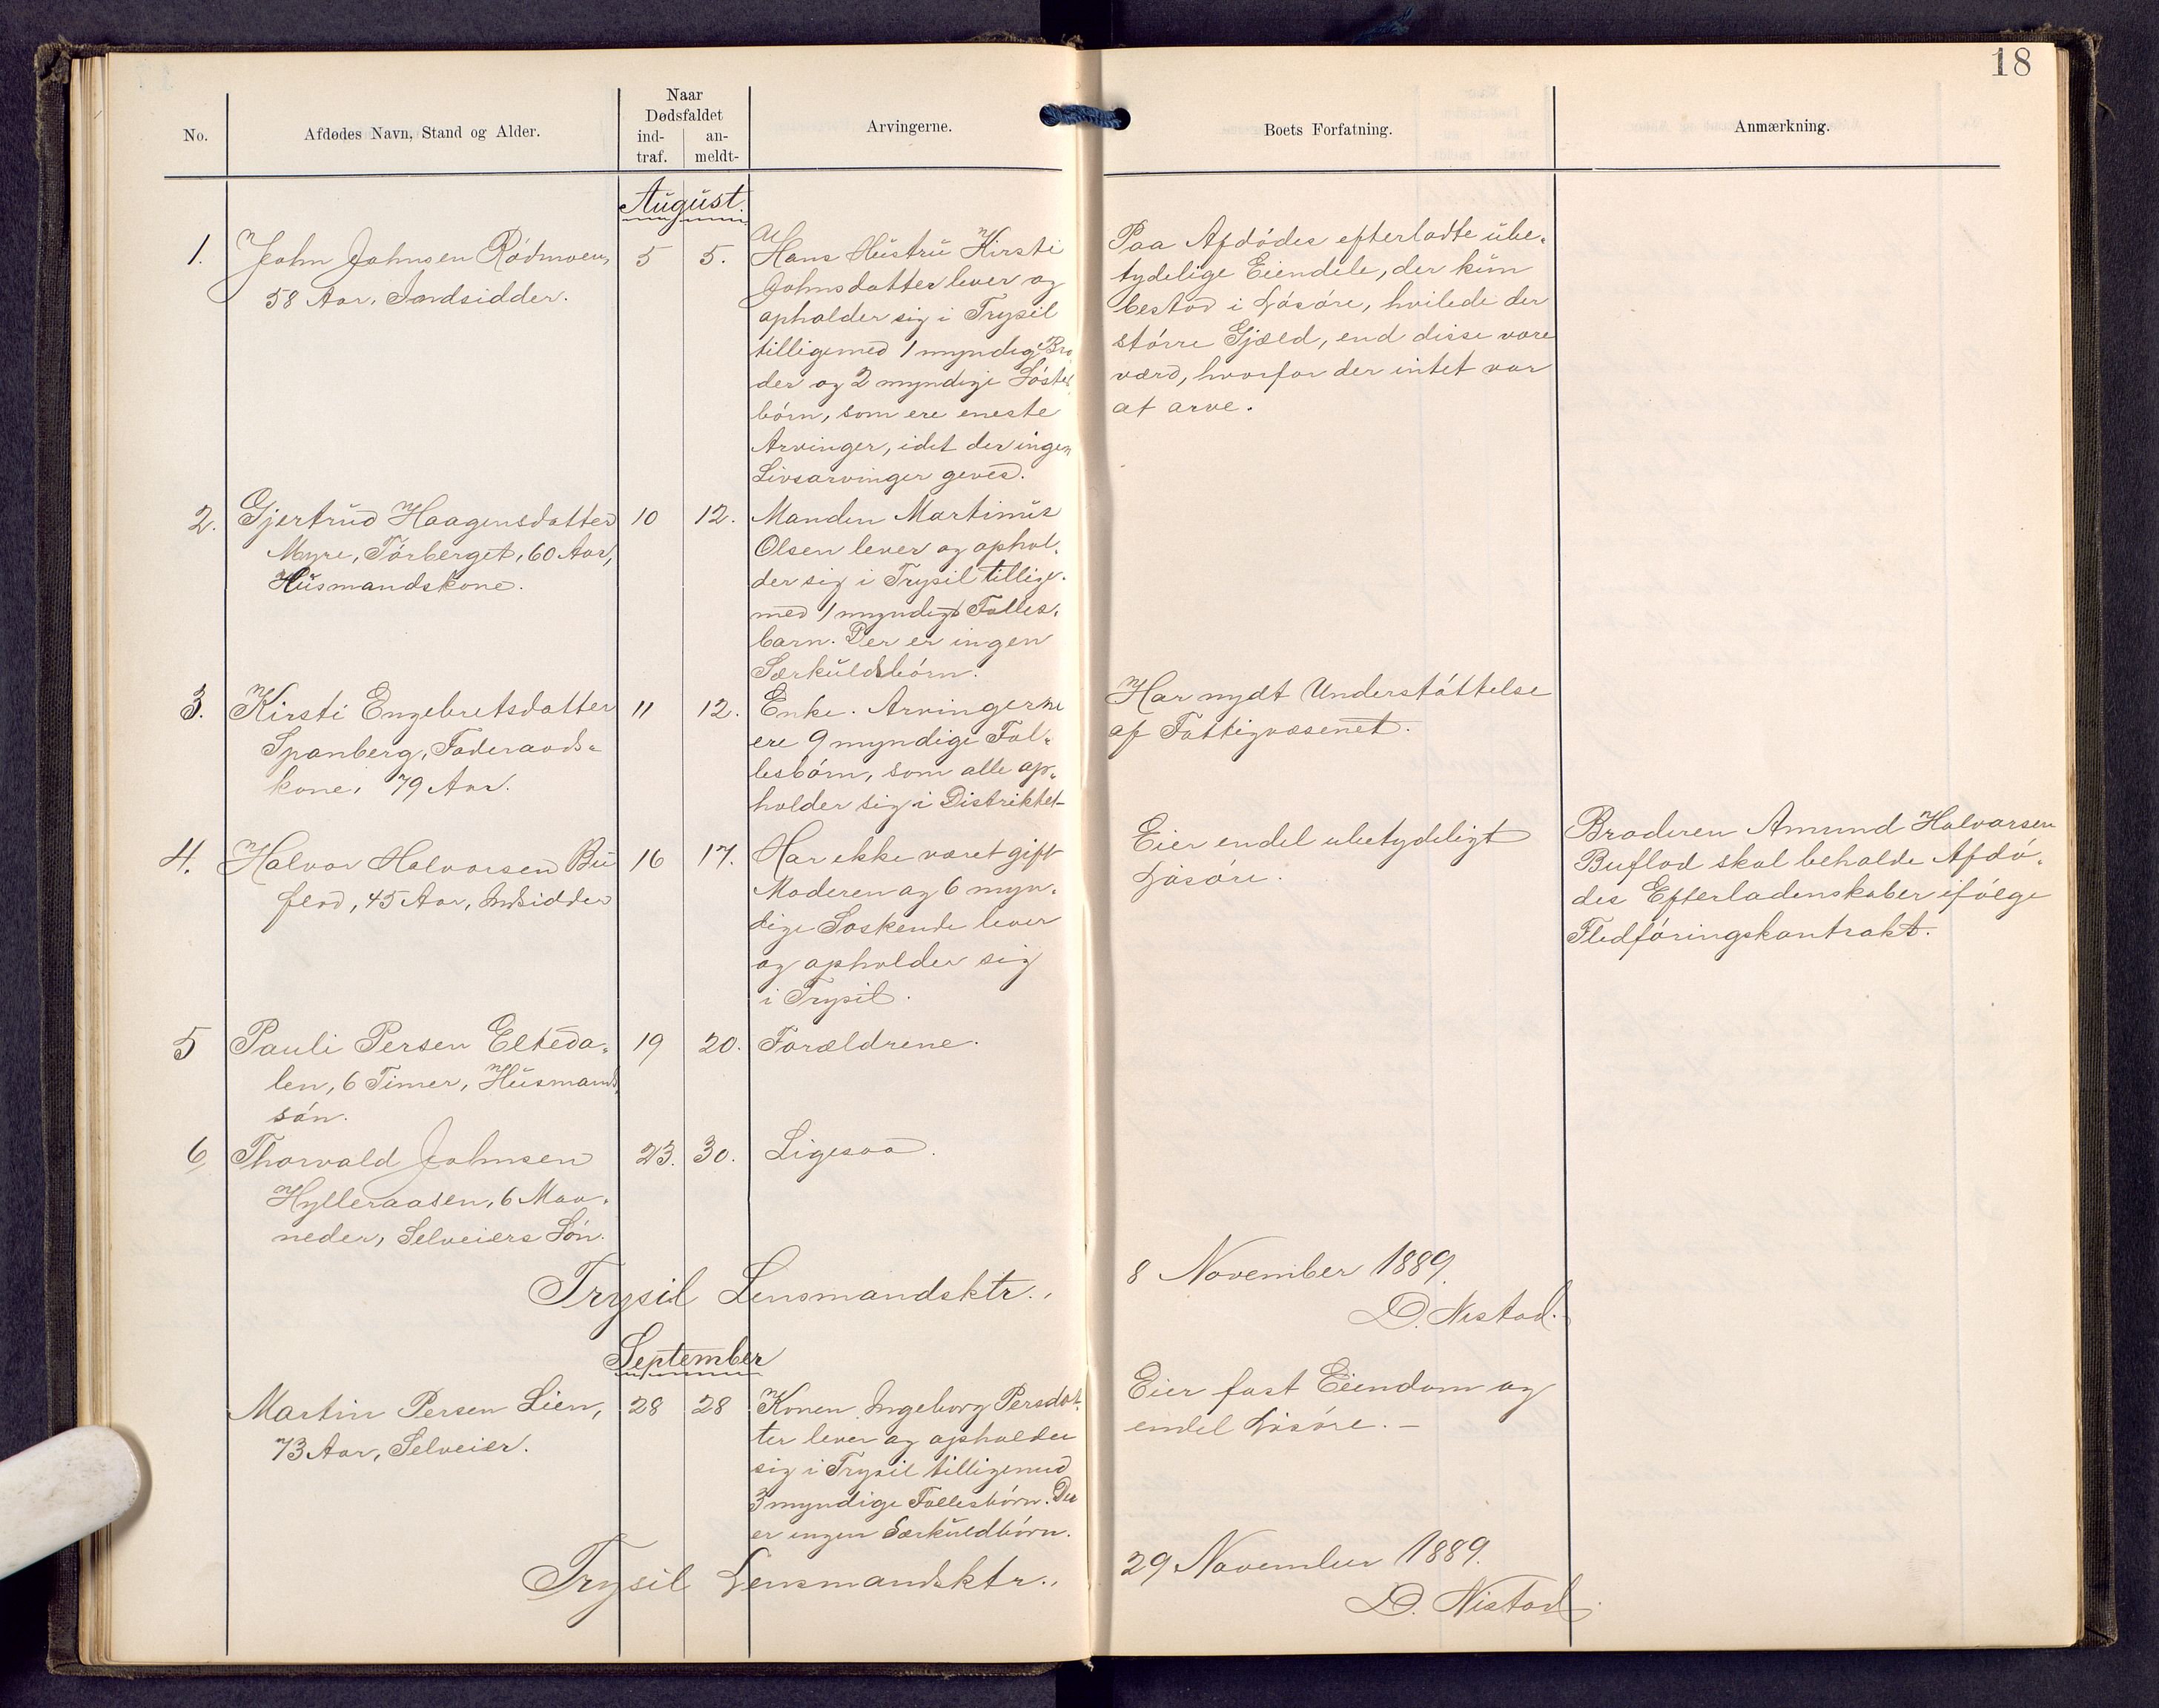 18
No.
Afdødes Navn, Stand og Alder.
Naar
Dødsfaldet
ind-
traf.
an-
meldt-
Arvingerne.
Boets Forfatning.
Anmærkning.
August.
1.
John Johnsen Rödmoen,
58 Aar, Indsidder.
5
5.
Hans Hustru Kirsti
Johnsdatter lever og
opholder sig i Trysil
tilligemed 1 myndig Bro
der og 2 myndige Söster
börn, som ere eneste
Arvinger, idet der ingen
Livsarvinger geves.
Paa Afdödes efterladte ube-
tydelige Eiendele, der kun
bestod i Lösöre, hvilede der
större Gjæld, end disse vare
værd, hvorfor der intet var
at arve.
2.
Gjertrud Haagensdatter
Myre, Törberget, 60 Aar,
Husmandskone.
10
12.
Manden Martinus
Olsen lever og ophol-
der sig i Trysil tillige-
med 1 myndigt Fælles-
barn. Der er ingen
Særkuldsbörn.
3.
Kirsti Engebretsdatter
Spanberg, Föderaads-
kone, 79 Aar.
11
12.
Enke. Arvingerne
ere 9 myndige Fæl-
lesbörn, som alle op-
holder sig i Distriktet-
Har nydt Understöttelse
af Fattigvæsenet.
4.
Halvor Halvorsen Bu
flod, 45 Aar, Indsidder
16
17.
Har ikke været gift
Moderen og 6 myn-
dige Söskende lever
og opholder sig
i Trysil.
Eier endel ubetydeligt
Lösöre.
Broderen Amund Halvorsen
Buflod skal beholde Afdö-
des Efterladenskaber ifölge
Fledföringskontrakt.
5
Pauli Persen Elteda-
len, 6 Timer, Husmands
sön.
19
20.
Forældrene.
6
Thorvald Johnsen
Hylleraasen, 6 Maa-
neder, Selveiers Sön.
23.
30.
Ligesaa.
Trysil Lensmandsktr.,
8 November 1889.
D. Nistad.
September
Martin Persen Lien,
73 Aar, Selveier.
28
28
Konen Ingeborg Persdat-
ter lever og opholder
sig i Trysil tilligemed
3 myndige Fællesbörn. Der
er ingen Særkuldbörn.
Eier fast Eiendom og
endel Lösöre. -
Trysil Lensmandsktr.,
29 November 1889.
D. Nistad.